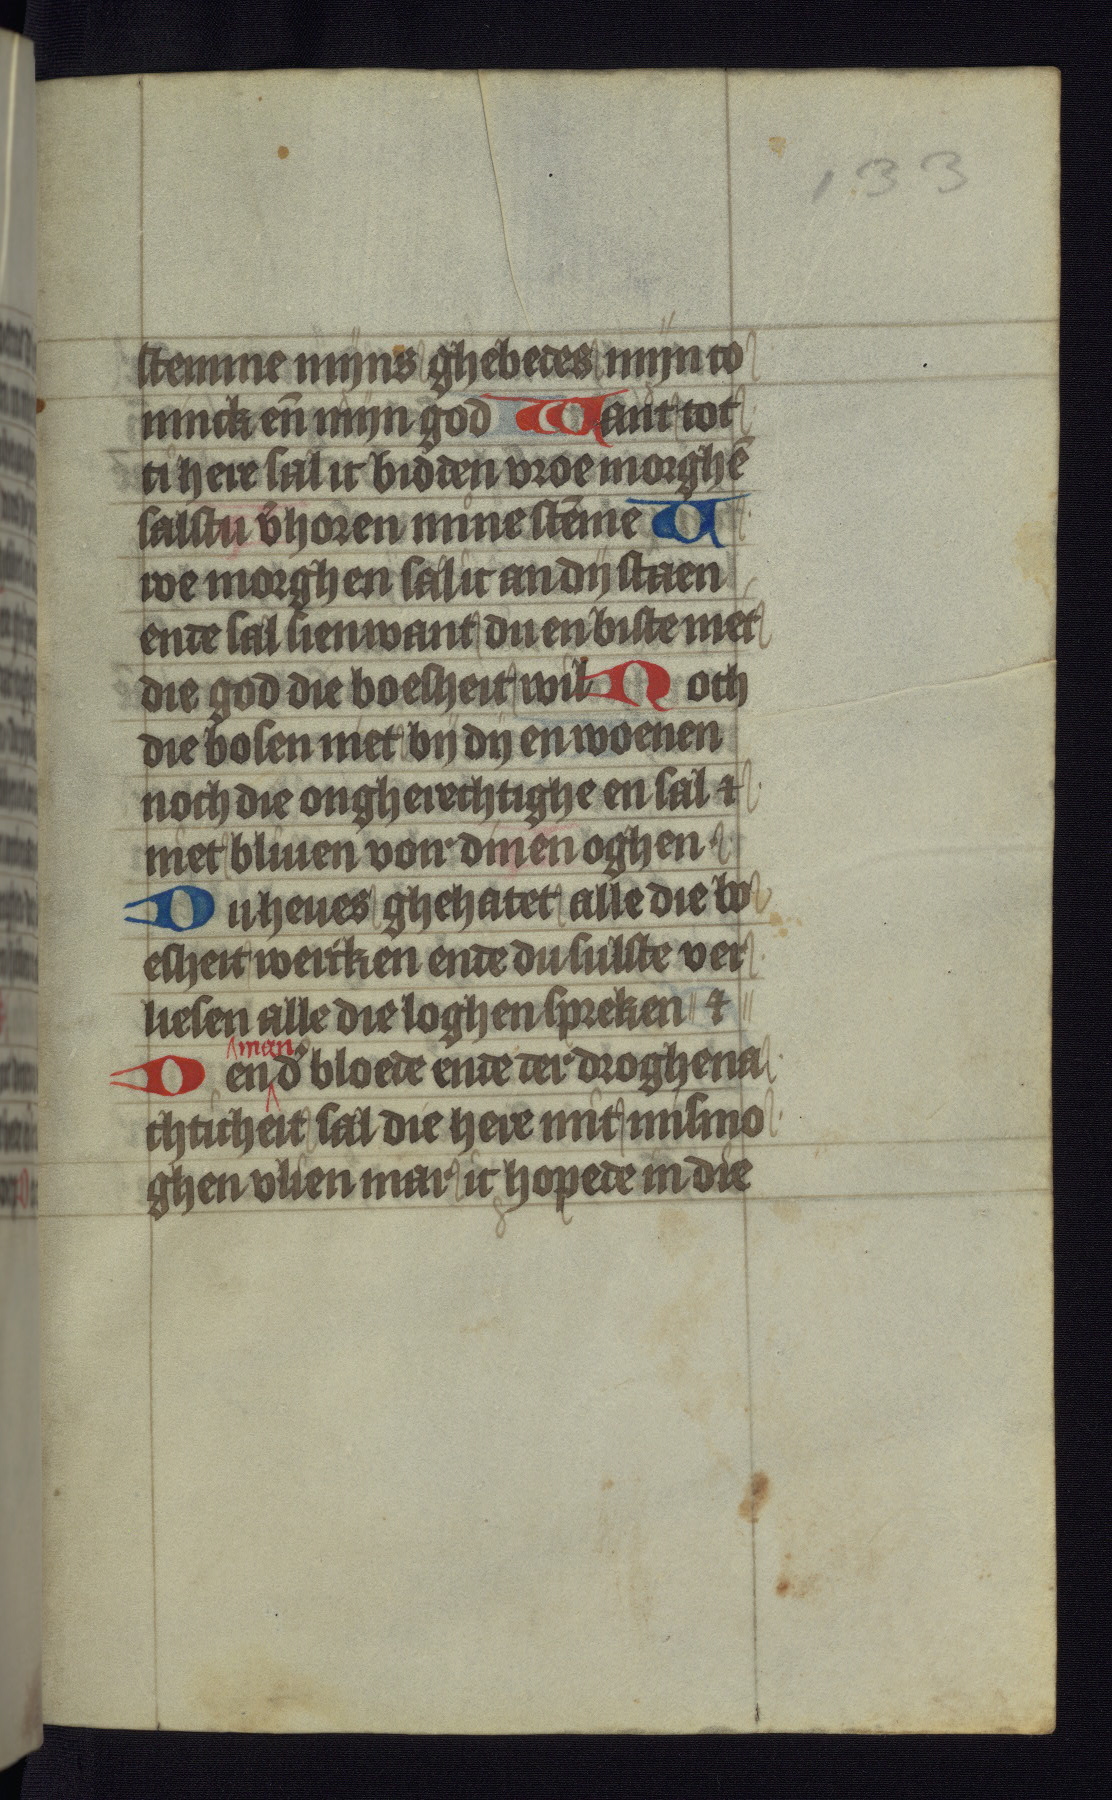 133
stemme mijns ghebedes mijn co
ninck eñ mijn god Want tot
ti here sal ic bidden vroe morghē
salstu v̄horen mine stēme U
we morghen sal ic an dij staen
ende sal sien want du en biste niet
die god die boesheit wil Noch
die bosen niet bij dij en woenen
noch die ongherechtighe en sal
niet bliuen vorͬ dinen oghen
Du heues ghehatet alle die bo
esheit wercken ende du sulste ver
liesen alle die loghen spreken
man
Den d̕ bloede ende der droghena
chticheit sal die here mit misma
ghen vlien mar ic hopede in die